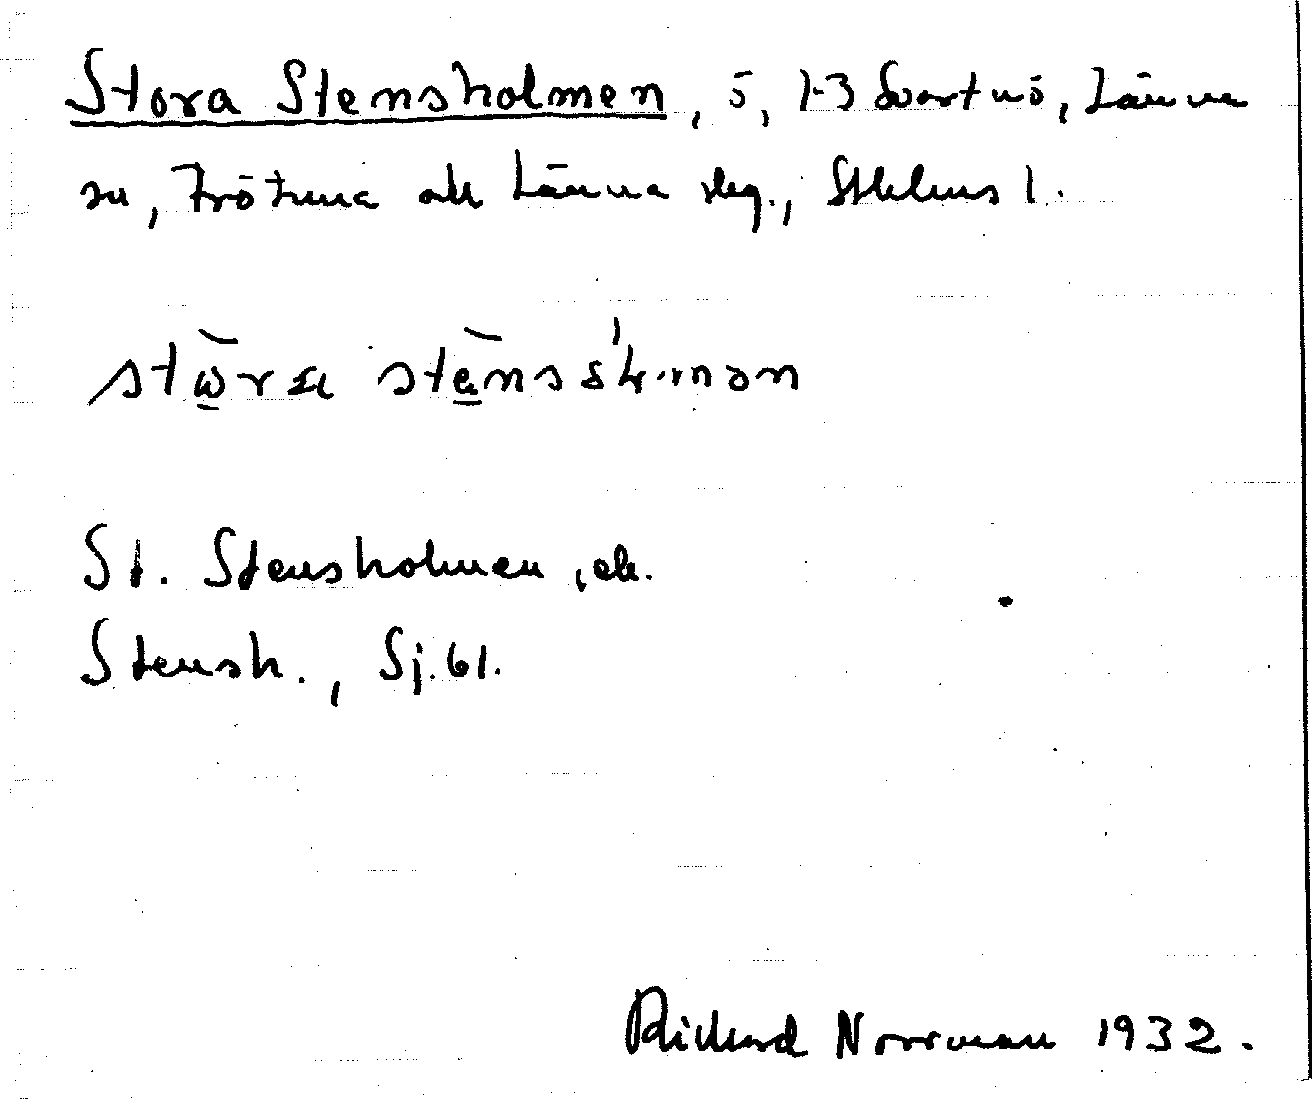 Stora Stensholmen, ö, 1-3 Svartnö, Länna
sn, Frötuna och Länna skg., Sthlms l.
St. Stensholmen, ek.
Stensh., Sj. 61.
Rickard Norrman 1932.